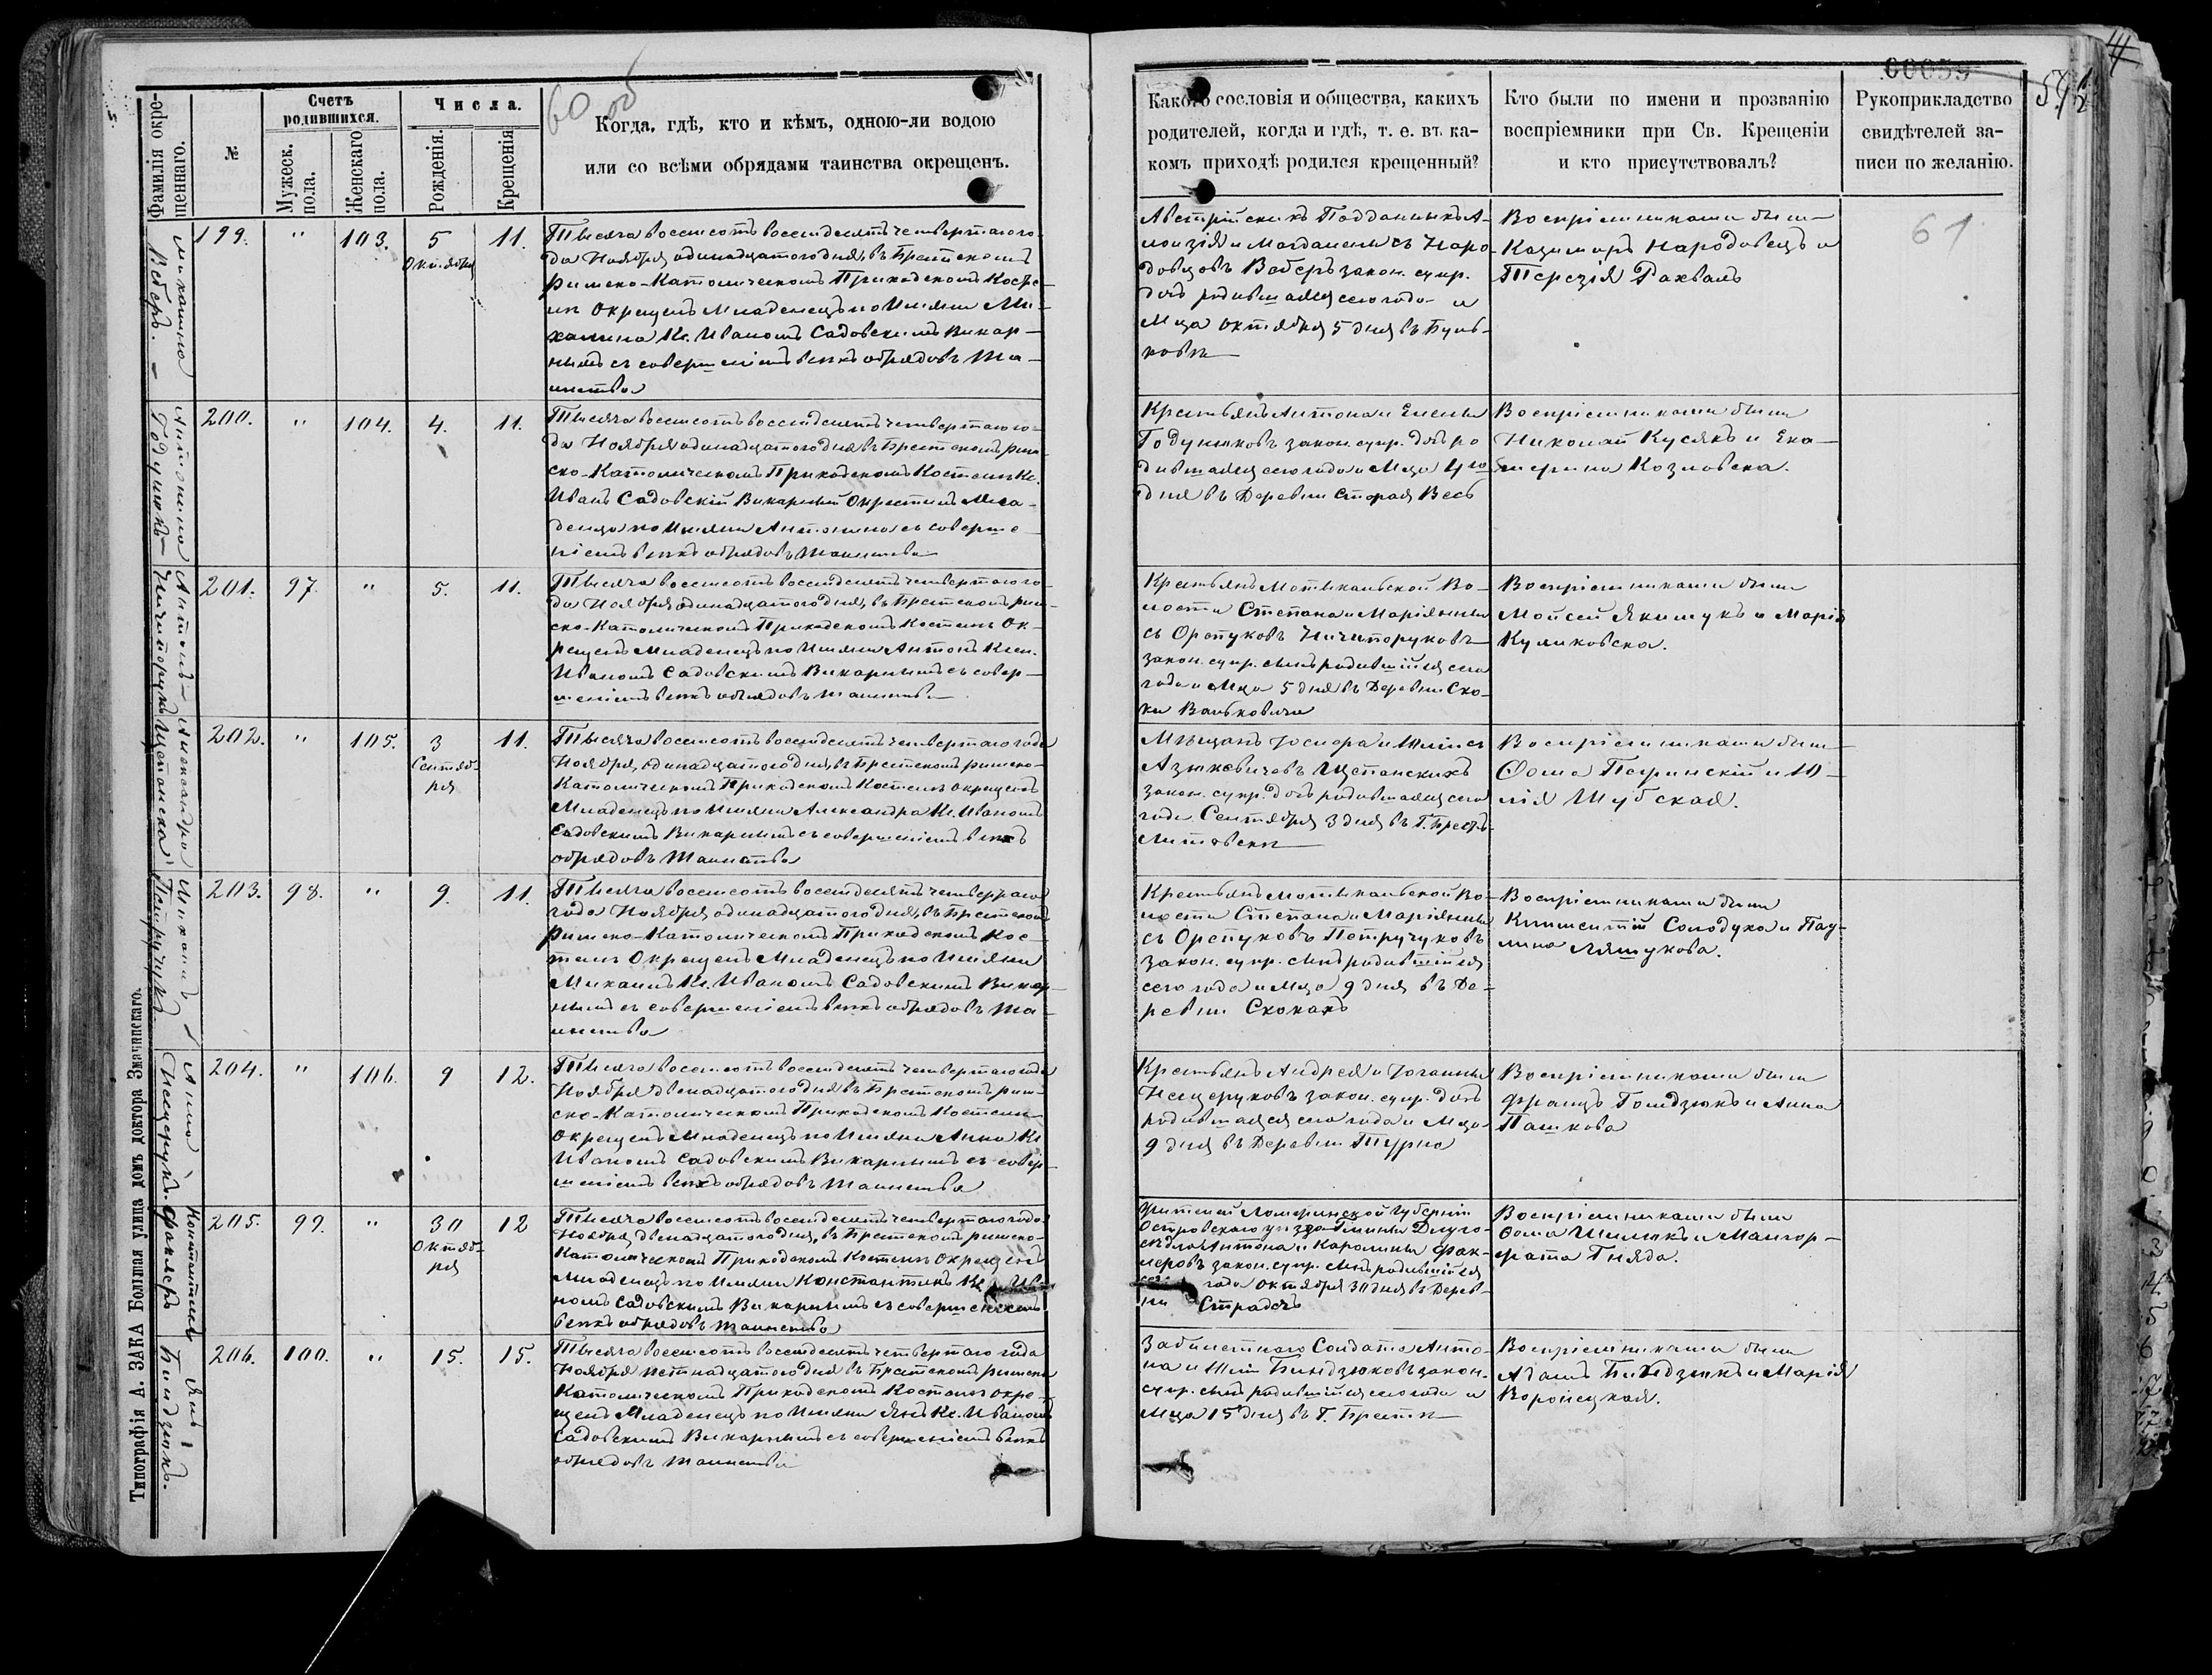 60 об
Фамилія окре-
щеннаго.
№
Счетъ
родившихся.
Мужеск.
пола.
Женскаго
пола.
Числа.
Рожденія.
Крещенія
Когда, гдѣ, кто и кѣмъ, одною-ли водою
или со всѣми обрядами таинства окрещенъ.
Михалина
Веберъ. –
199.
"
103.
5
Октября
11.
Тысяча восемсотъ восемдесятъ четвертаго го-
да Ноября одинадцатого дня, въ Брестскомъ
Римско-Католическомъ Приходскомъ Косте-
лѣ Окрещенъ Младенецъ по Имяни Ми-
халина Кс. Иваномъ Садовскимъ Викар-
нымъ съ совершеніемъ всѣхъ обрядовъ Та-
инства
Антонина
Годунюкъ –
200.
"
104.
4.
11.
Тысяча восемсотъ восемдесятъ четвертаго го-
да Ноября одинадцатого дня въ Брестскомъ рим-
ско-Католическомъ Приходскомъ Костелѣ Кс.
Иванъ Садовскій Викарный Окрестилъ Мла-
денца по Имяни Антонина съ соверше-
ніемъ всѣхъ обрядовъ Таинства
Антонъ –
Ничипорукъ
201.
97.
"
5.
11.
Тысяча восемсотъ восемдесятъ четвертаго го-
да Ноября одинадцатого дня, въ Брестскомъ рим-
ско-Католическомъ Приходскомъ Костелѣ Ок-
рещенъ Младенецъ по Имяни Антонъ Ксен.
Иваномъ Садовскимъ Викарнымъ съ совер-
шеніемъ всѣхъ обрядовъ Таинства
Александра
Щепанска
202.
"
105.
3
Сентяб-
ря
11.
Тысяча восемсотъ восемдесятъ четвертаго года
Ноября, одинадцатого дня, въ Брестскомъ римско-
Католическомъ Приходскомъ Костелѣ окрещенъ
Младенецъ по Имяни Александра Кс. Иваномъ
Садовскимъ Викарнымъ съ совершеніемъ всѣхъ
обрядовъ Таинства
Михаилъ
Петручукъ
203.
98.
"
9.
11.
Тысяча восемсотъ восемдесятъ четвертаго
года Ноября одинадцатого дня, въ Брестскомъ
Римско-Католическомъ Приходскомъ Кос-
телѣ Окрещенъ Младенецъ по Имяни
Михаилъ Кс. Иваномъ Садовскимъ Викар-
нымъ съ совершеніемъ всѣхъ обрядовъ Та-
инства
Анна
Нещерукъ.
204.
"
106.
9
12.
Тысяча восемсотъ восемдесятъ четвертаго года
Ноября двенадцатого дня въ Брестскомъ рим-
ско-Католическомъ Приходскомъ Костелѣ
Окрещенъ Младенецъ по Имяни Анна Кс
Иваномъ Садовскимъ Викарнымъ съ совер-
шеніемъ всѣхъ обрядовъ Таинства
Константинъ
Факлеръ
205.
99.
"
30
Октяб-
ря
12
Тысяча восемсотъ восемдесятъ четвертаго года
Ноября двенадцатого дня, въ Брестскомъ римско-
Католическомъ Приходскомъ Костелѣ Окрещенъ
Младенецъ по Имяни Константинъ Кс Ива-
номъ Садовскимъ Викарнымъ съ совершеніемъ
всѣхъ обрядовъ Таинства
Янъ
Биндзюкъ.
206.
100.
"
15.
15.
Тысяча восемсотъ восемдесятъ четвертаго года
Ноября петнадцатого дня въ Брестскомъ римско
Католическомъ Приходскомъ Костелѣ окре-
щенъ Младенецъ по Имяни Янъ Кс. Иваномъ
Садовскимъ Викарнымъ съ совершеніемъ всѣхъ
обрядовъ Таинства
Типографія А. ЗАКА Болтая улица домъ доктора Змачинскаго.
00059
Какого сословія и общества, какихъ
родителей, когда и гдѣ, т. е. въ ка-
комъ приходѣ родился крещенный?
Кто были по имени и прозванію
воспріемники при Св. Крещеніи
и кто присутствовалъ?
Рукоприкладство
свидѣтелей за-
писи по желанію.
61
Австрійскихъ Подданныхъ А-
лоизія и Магдалены съ Наро-
довцовъ Веберъ закон. супр.
дочь родившаяся сего года и
Мца октября 5 дня въ Буль-
ковѣ
Воспріемниками были
Казимиръ Народовецъ и
Терезія Рахваль
Крестьянъ Антона и Елены
Годунюковъ закон. супр. дочь ро
дившаяся сего года и Мца 4го
дня въ Деревни Старая Весь
Воспріемниками были
Николай Кусякъ и Ека-
терина Козловска.
Крестьянъ Мотыкальской Во-
лости Степана и Маріянны
съ Оропуковъ Ничипоруковъ
закон. супр. сынъ родившійся сего
года и Мца 5 дня въ Деревни Ско-
ки Вацковичи
Воспріемниками были
Мойсей Якимукъ и Марія
Куликовска.
Мѣщанъ Іосифа и Юліи съ
Азыкевичовъ Щепанскихъ
закон. супр. дочь родившаяся сего
года Сентября 3 дня въ Г. Брестъ-
Литовскѣ
Воспріемниками были
Фома Петринскій и Ю-
лія Шубская.
Крестьянъ Мотыкальской Во-
лости Степана и Маріянны
съ Орепуковъ Петручуковъ
закон. супр. сынъ родившійся
сего года и Мца 9 дня въ Де-
ревни Скокахъ
Воспріемниками были
Климентій Солодуха и Пау-
лина Ляшукова.
Крестьянъ Андрея и Іоганны
Нещеруковъ закон. супр. дочь
родившаяся сего года и Мца
9 дня въ Деревни Турна
Воспріемниками были
Францъ Гошдзюкъ и Анна
Пашкова
Жителей Ломжинской Губерніи
Островскаго уѣзда Гмины Длуго-
седло Антона и Каролины Фак-
леровъ закон. супр. сынъ родившійся
года Октября 30 дня въ Дерев-
ни Страдечъ
Воспріемниками были
Фома Шилюкъ и Малгор-
жата Гняда.
Забилетного Солдата Анто-
на и Юліи Биндзюковъ закон.
супр. сынъ родившійся сего года и
Мца 15 дня въ Г. Брестѣ
Воспріемниками были
Адамъ Биндзюкъ и Марія
Вороніецкая.